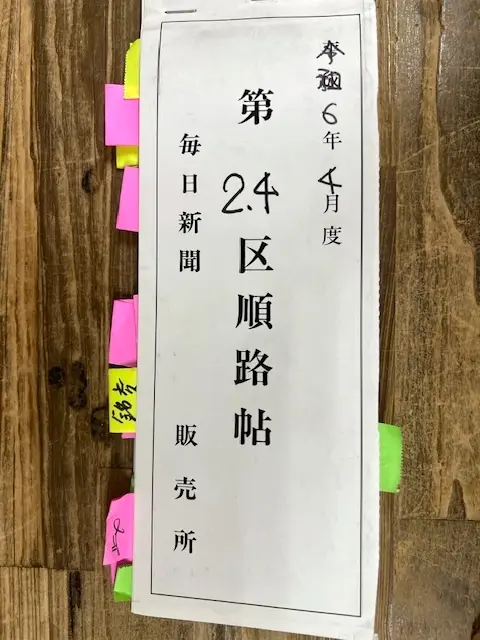 6年4月度
第2.4区順路帖
毎日新聞 販売所